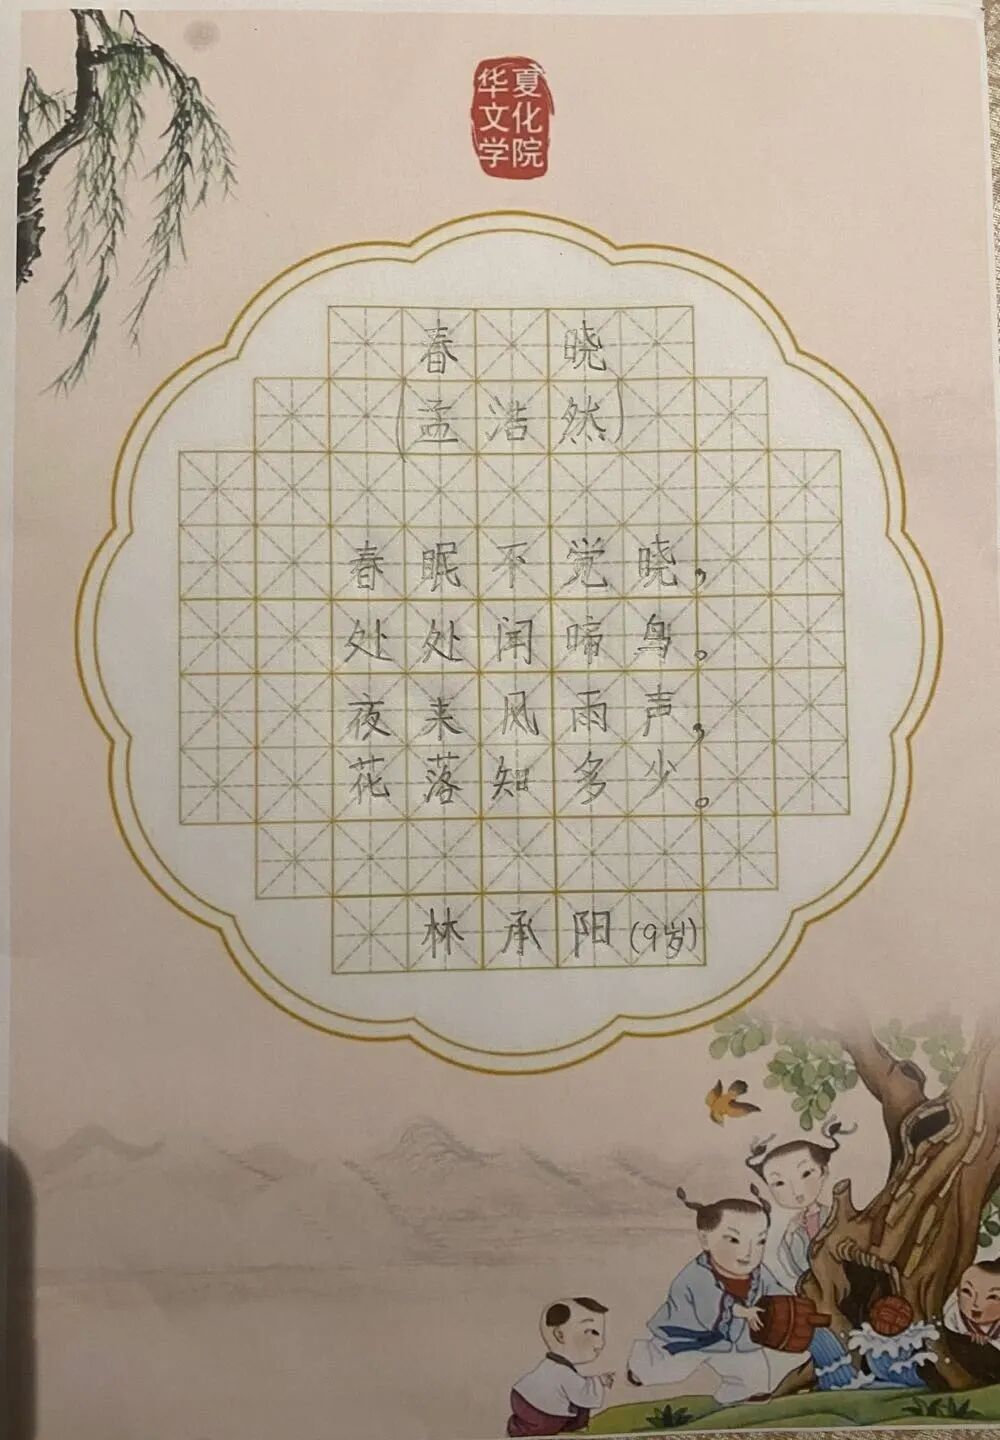 华夏
文化
学院
春晓
(孟浩然)
春眠不觉晓,
处处闻啼鸟。
夜来风雨声,
花落知多少。
林承阳(9岁)